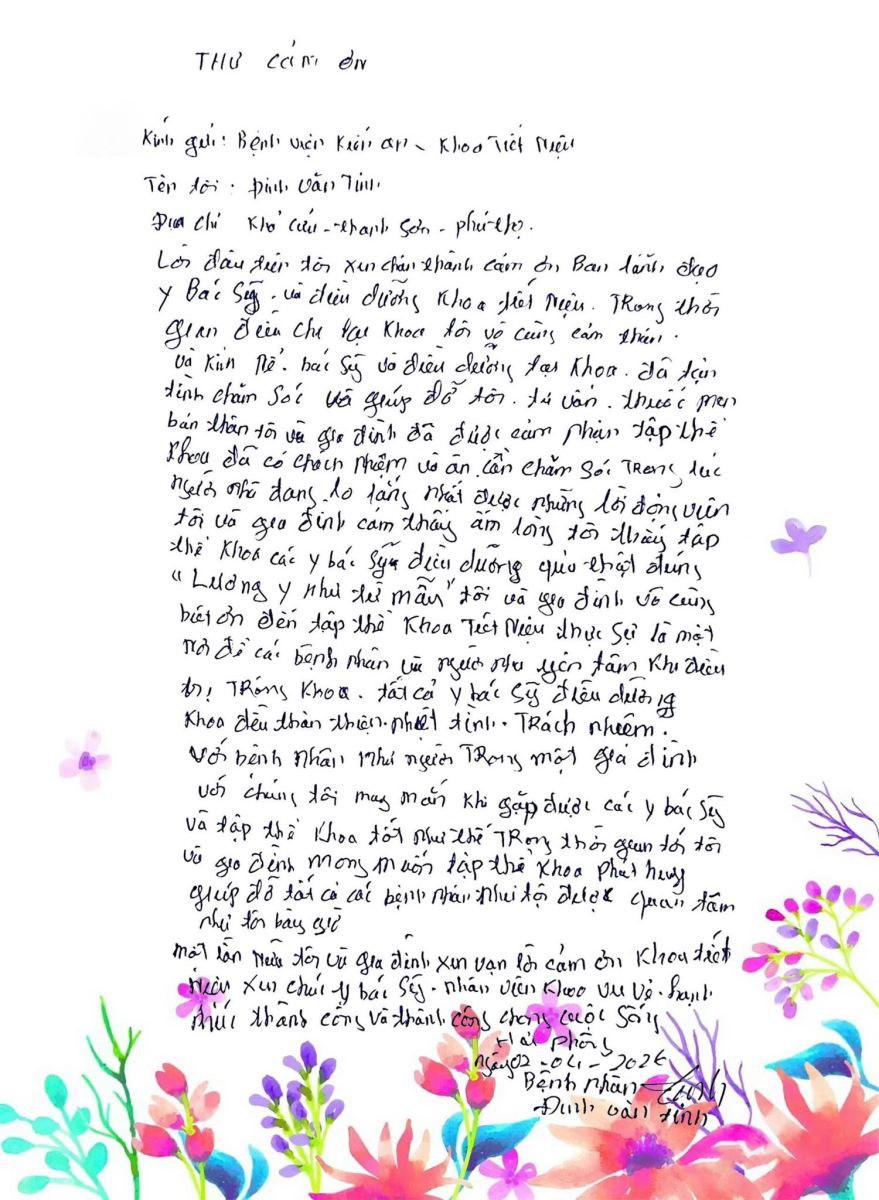 THƯ CẢM ƠN
Kính gửi: Bệnh viện Kiến an - Khoa Tiết Niệu
Tên tôi. Đinh Văn Tỉnh
Địa chỉ Khả Cửu - thanh Sơn - phú thọ.
Lời đầu tiên tôi xin chân thành cảm ơn Ban lãnh đạo
y Bác Sỹ. và điều dưỡng Khoa tiết Niệu. TRong thời
gian điều chị tại Khoa tôi vô cùng cảm thán.
và Kính Nể. bác Sỹ và điều dưỡng tại Khoa. đã tận
tình chăm sóc và giúp đỡ tôi. tư vấn. thuốc men
bản thân tôi và gia đình đã được cảm nhận tập thể
Khoa đã có chách nhiệm và ân cần chăm Sóc TRong lúc
người nhà đang lo lắng nhất được những lời động viên
tôi và gia đình cảm thấy ấm lòng tôi thấy tập
thể Khoa các y bác Sỹ điều dưỡng quả thật đúng
"Lương y như từ mẫu" tôi và gia đình vô cùng
biết ơn đến tập thể Khoa Tiết Niệu thực Sự là một
nơi để các bệnh nhân và người nhà yên tâm Khi điều
trị TRong Khoa. tất cả y bác Sỹ điều dưỡng
Khoa đều thân thiện. nhiệt tình. TRách nhiệm.
với bệnh nhân như người TRong một giá đình
với chúng tôi may mắn khi gặp được các y bác Sỹ
và tập thể Khoa tốt như thế TRong thời gian tới tôi
và gia đình mong muốn tập thể Khoa phát huy
giúp đỡ tất cả các bệnh nhân như tôi được quan tâm
như tôi bây giờ
một lần nữa tôi và gia đình xin vạn lời cảm ơn Khoa tiết
Niệu xin chúc y bác Sỹ. nhân viên Khoa vui vẻ. hạnh
phúc thành công và thành công chong cuộc Sống
Hải Phòng
ngày 02 - 04 - 2026
Bệnh nhân
Đinh văn tỉnh